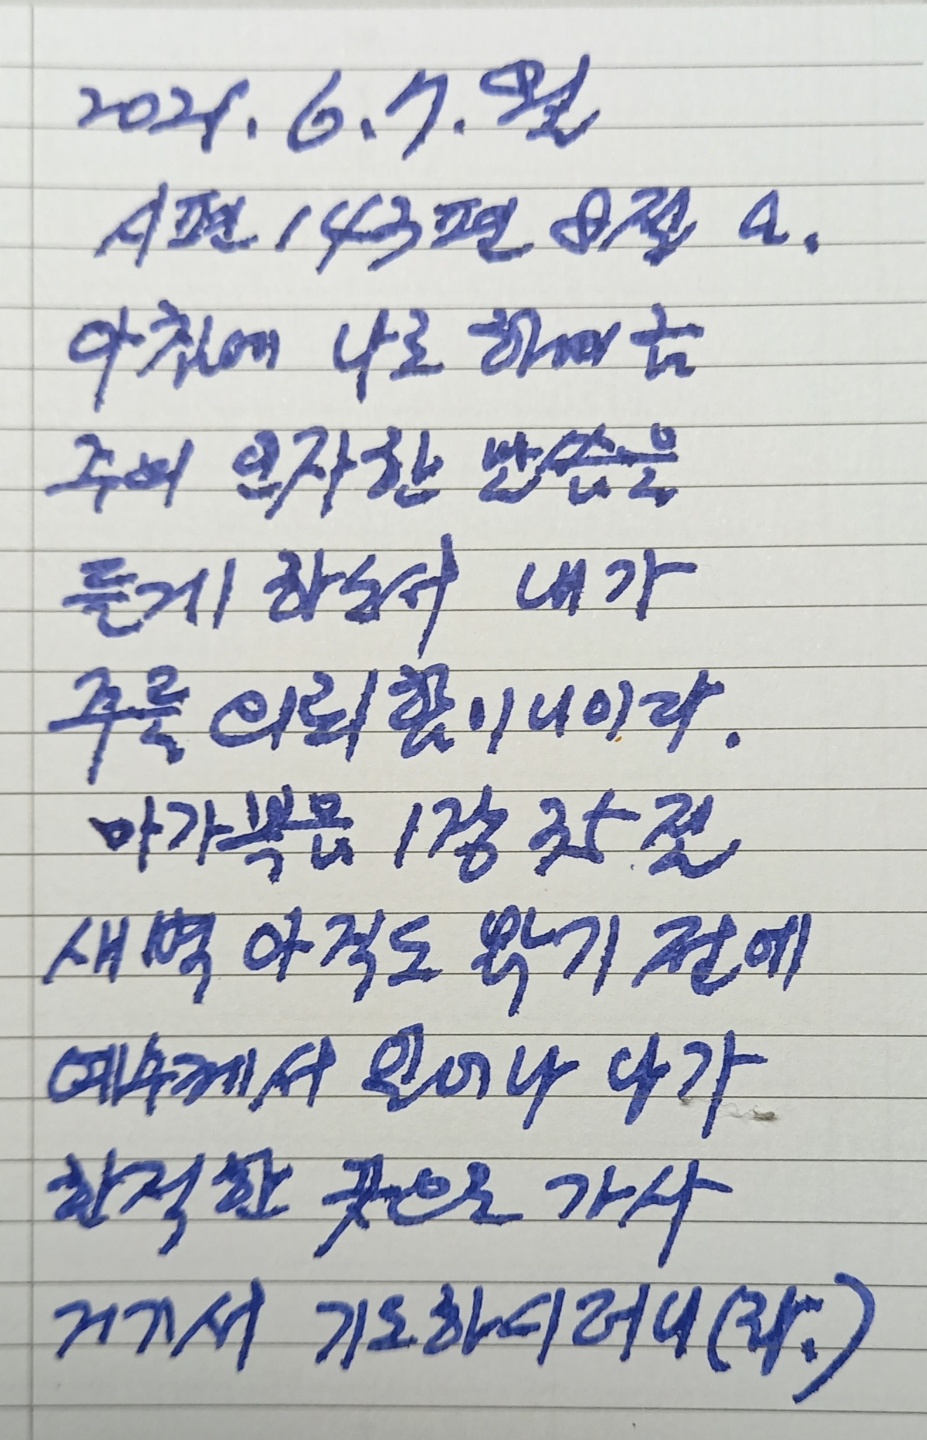 2021. 6. 7. 월
시편 143편 8절 a.
아침에 나로 하여금
주의 인자한 말씀을
듣게 하소서 내가
주를 의뢰함이니이다.
마가복음 1장 35절
새벽 아직도 밝기 전에
예수께서 일어나 나가
한적한 곳으로 가사
거기서 기도하시더니